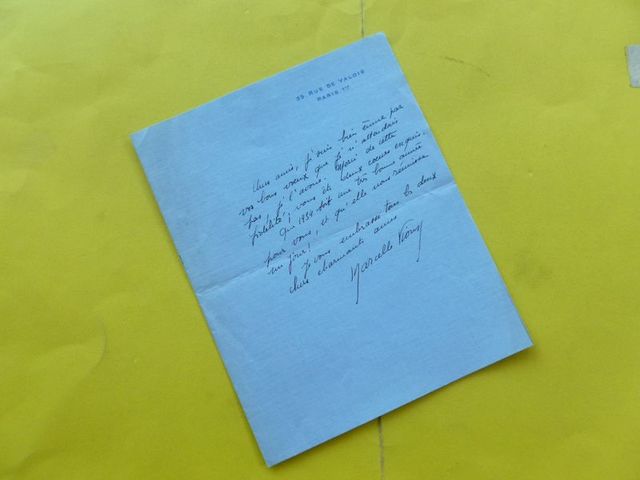 35 RUE DE VALOIS
PARIS 1ER
Chers amis, j'suis bien émue par
vos bons voeux que je n'attendais
pas, je l'avoue. Merci de cette
fidélité ; vous êtes deux coeurs exquis.
Que 1959 soit une très bonne année
pour vous, et qu'elle nous réunisse
un jour !
Je vous embrasse tous les deux
chers charmants amis
Marcelle